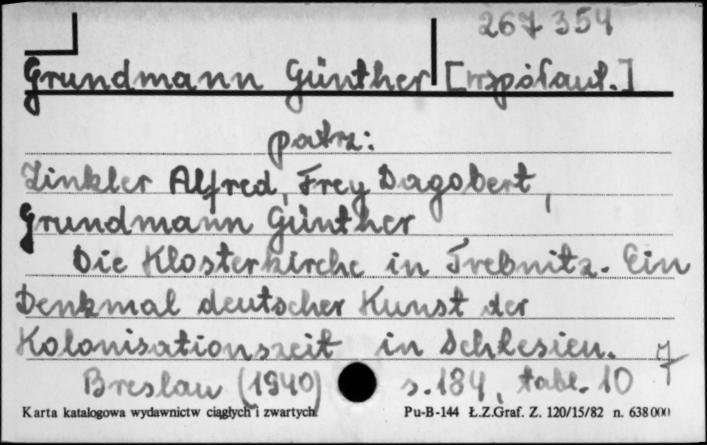 267354
Grundmann Günther [współaut.]
patrz:
Zinkler Alfred, Frey Dagobert,
Grundmann Günther
Die Klosterkirche in Trebnitz. Ein
Denkmal deutscher Kunst der
Kolonisationszeit in Schlesien.
7
Breslau (1940) s. 184, tabl. 10
Karta katalogowa wydawnictw ciągłych i zwartych. Pu-B-144 Ł.Z.Graf. Z. 120/15/82 n. 638000